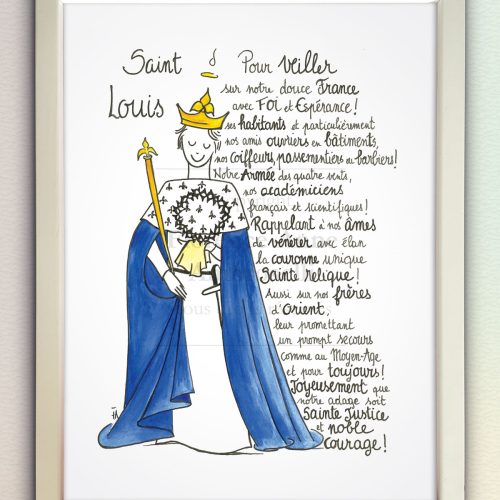 Saint
Louis
Pour veiller
sur notre douce France
avec Foi et Espérance !
ses habitants et particulièrement
nos amis ouvriers en bâtiments,
nos coiffeurs, passementiers ou barbiers!
Notre Armée des quatre vents,
nos académiciens
français et scientifiques !
Rappelant à nos âmes
de vénérer avec élan
la couronne unique
Sainte relique !
Aussi sur nos frères
d'Orient,
leur promettant
un prompt secours
comme au Moyen-Age
et pour toujours !
Joyeusement que
notre adage soit
Sainte Justice
et noble
courage !